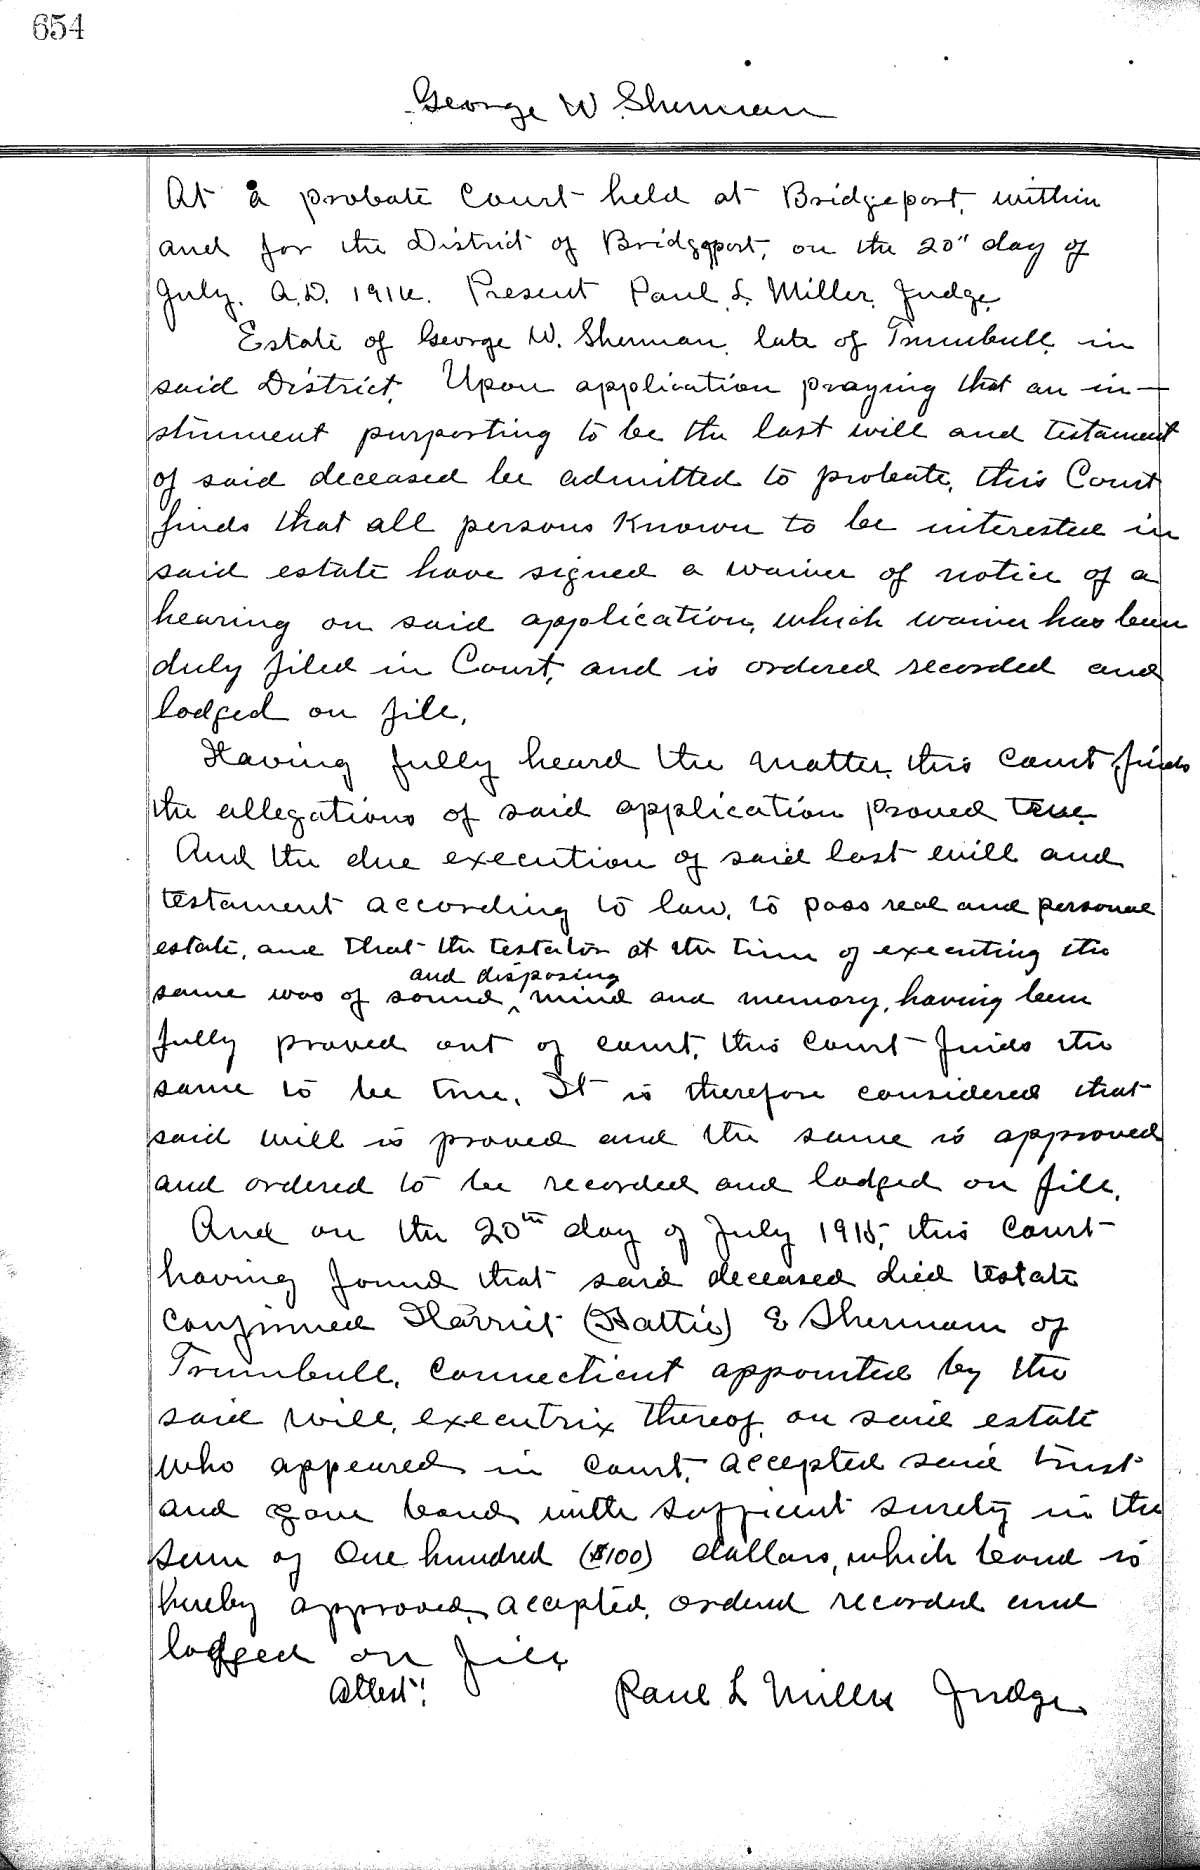 654
George W Sherman
At a probate Court held at Bridgeport, within
and for the District of Bridgeport, on the 20" day of
July. A.D. Present Paul L. Miller, Judge.
Estate of George W. Sherman, late of Trumbull, in
said District. Upon application praying that an in-
strument purporting to be the last will and testament
of said deceased be admitted to probate, this Court
finds that all persons known to be interested in
said estate have signed a waiver of notice of a
hearing on said application, which waiver has been
duly filed in Court, and is ordered recorded and
lodged on file.
Having fully heard the matter, this Court finds
the allegations of said application proved true.
And the due execution of said last will and
testament according to law, to pass real and personal
estate, and that the testator at the time of executing the
and disposing
same was of sound ^ mind and memory, having been
fully proved out of court, this Court finds the
same to be true. It is therefore considered that
said will is proved and the same is approved
and ordered to be recorded and lodged on file.
And on the 20th day of July this Court
having found that said deceased died testate
confirmed Harriet (Hattie) E Sherman of
Trumbull, Connecticut appointed by the
said will, executrix thereof, on said estate
who appeared in Court, accepted said trust
and gave bond with sufficient surety in the
sum of One hundred ($100) dollars, which bond is
hereby approved, accepted, ordered recorded and
lodged on file
Attest: Paul L Miller Judge.